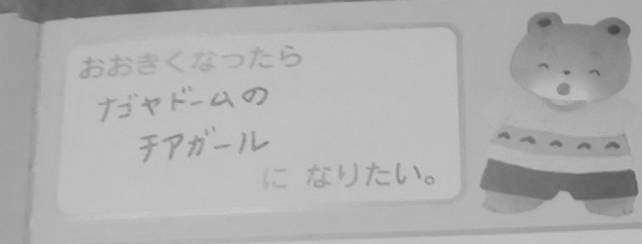 おおきくなったら
ナゴヤドームの
チアガール
に なりたい。